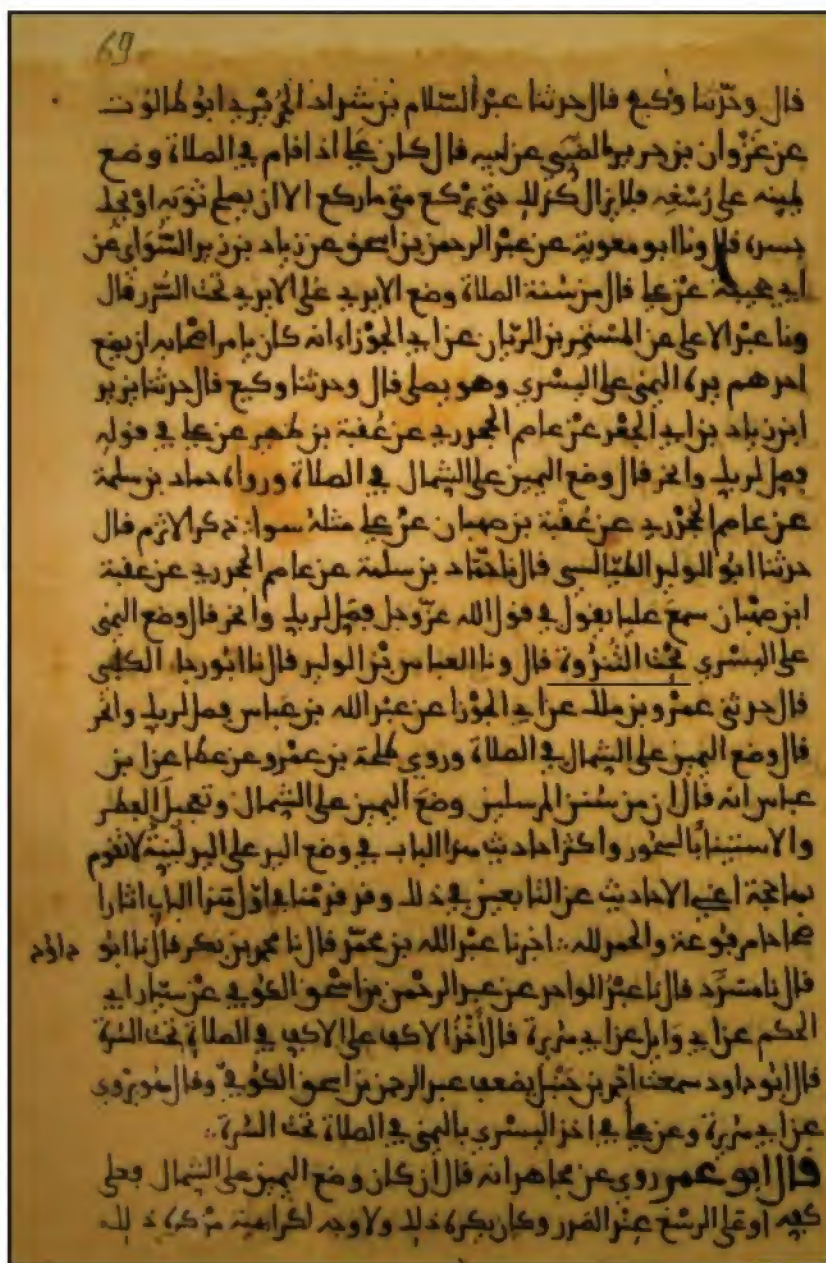 69
قال وحدثنا وكيع قال حدثنا عبد السلام بن شداد الجريري ابو طالوت
عن غزوان بن جرير الضبي عن ابيه قال كان علي اذا قام في الصلاة وضع
يمينه على رسغه فلا يزال كذلك حتى يركع متى ما ركع الا ان يصلح ثوبه او يحك
جسده قال ونا ابو معوية عن عبد الرحمن بن اسحق عن زياد بن زيد السوائي عن
ابي جحيفة عن علي قال من سنة الصلاة وضع الايدي على الايدي تحت السرر قال
ونا عبد الاعلى عن المستمر بن الريان عن ابي الجوزاء انه كان يامر اصحابه ان يضع
احدهم يده اليمنى على اليسرى وهو يصلي قال وحدثنا وكيع قال حدثنا يزيد
ابن زياد بن ابي الجعد عن عاصم الجحدري عن عقبة بن ظهير عن علي في قوله
فصل لربك وانحر قال وضع اليمين على الشمال في الصلاة ورواه حماد بن سلمة
عن عاصم الجحدري عن عقبة بن صهبان عن علي مثله سوا ذكر الاثرم قال
حدثنا ابو الوليد الطيالسي قال نا حماد بن سلمة عن عاصم الجحدري عن عقبة
ابن صهبان سمع عليا يقول في قول الله عز وجل فصل لربك وانحر قال وضع اليمنى
على اليسرى تحت الثندوة قال ونا العباس بن الوليد قال نا ابو رجاء الكلبي
قال حدثني عمرو بن ملك عن ابي الجوزا عن عبد الله بن عباس فصل لربك وانحر
قال وضع اليمين على الشمال في الصلاة وروى طلحة بن عمرو عن عطا عن ابن
عباس انه قال ان من سنن المرسلين وضع اليمين على الشمال وتعجيل الفطر
والاستيناء بالسحور واكثر احاديث هذا الباب في وضع اليد على اليد لينة لا تقوم
بها حجة اعني الاحاديث عن التابعين في ذلك وقد قدمنا في اول هذا الباب اثارا
صحاحا مرفوعة والحمد لله اخبرنا عبد الله بن محمد قال نا محمد بن بكر قال نا ابو داود
قال نا مسدد قال نا عبد الواحد عن عبد الرحمن بن اسحق الكوفي عن سيار ابي
الحكم عن ابي وايل عن ابي هريرة قال اخذ الاكف على الاكف في الصلاة تحت السرة
قال ابو داود سمعت احمد بن حنبل يضعف عبد الرحمن بن اسحق الكوفي وقال هو يروي
عن ابي هريرة وعن علي في اخذ اليسرى باليمنى في الصلاة تحت السرة
قال ابو عمر روي عن مجاهد انه قال ان كان وضع اليمين على الشمال فعلى
كفه او على الرسغ عند الصدر وكان يكره ذلك ولا وجه لكراهية من كره ذلك